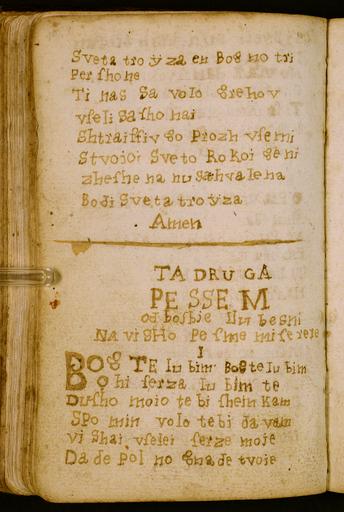 Sveta troÿza en Bog no tri
Perſhone
Ti nas Sa volo grehov
vſeli Saſho nai
Shtraiffiv go Prozh vſemi
Stvojoi Sveto Rokoi geni
zheſhe na nu Sæhvalena
Bodi Sveta troÿza
Amen
TA DRUGA
PESSEM
od boshie
NA viSHo Peſme miſerere
I
BOG TE Lu bim Bog te Lu bim
Bo hi ſerza Lu bim te
Duſho moio te bi ſhein kam
SPo min volo tebi da vam
vi Shai vſelei ſerze moie
Da de Pol no gnade tvoie